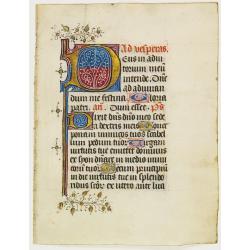 Ad vesperas.
Deus in adiu
torium meu
intende. Dne
ad adiuuan
dum me festina. Gloria
patri. an. Dum esset. ps.
Dixit dns dno meo sede
a dextris meis
ponam inimicos tuos scabel
lum pedum tuor. Virgam
virtutis tue emittet dominus
ex syon dominare in medio inimi
corum tuor. Tecum principiu
in die virtutis tue in splendo
ribus scor. ex utero ante luci